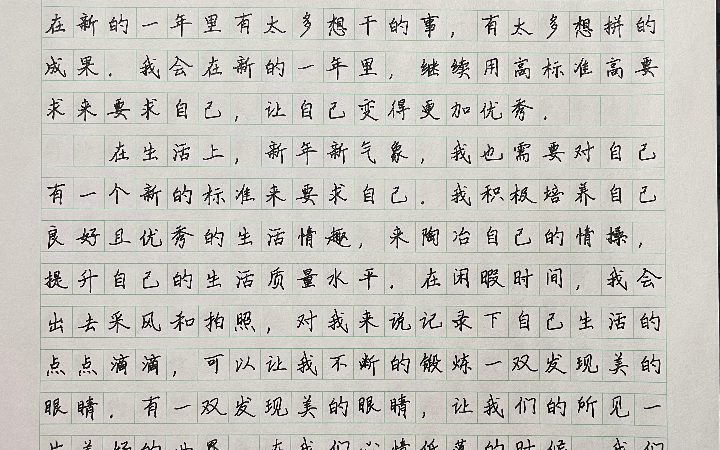 在新的一年里有太多想干的事，有太多想拼的
成果．我会在新的一年里，继续用高标准高要
求来要求自己，让自己变得更加优秀．
在生活上，新年新气象，我也需要对自己
有一个新的标准来要求自己．我积极培养自己
良好且优秀的生活情趣，来陶冶自己的情操，
提升自己的生活质量水平．在闲暇时间，我会
出去采风和拍照，对我来说记录下自己生活的
点点滴滴，可以让我不断的锻炼一双发现美的
眼睛．有一双发现美的眼睛，让我们的所见一